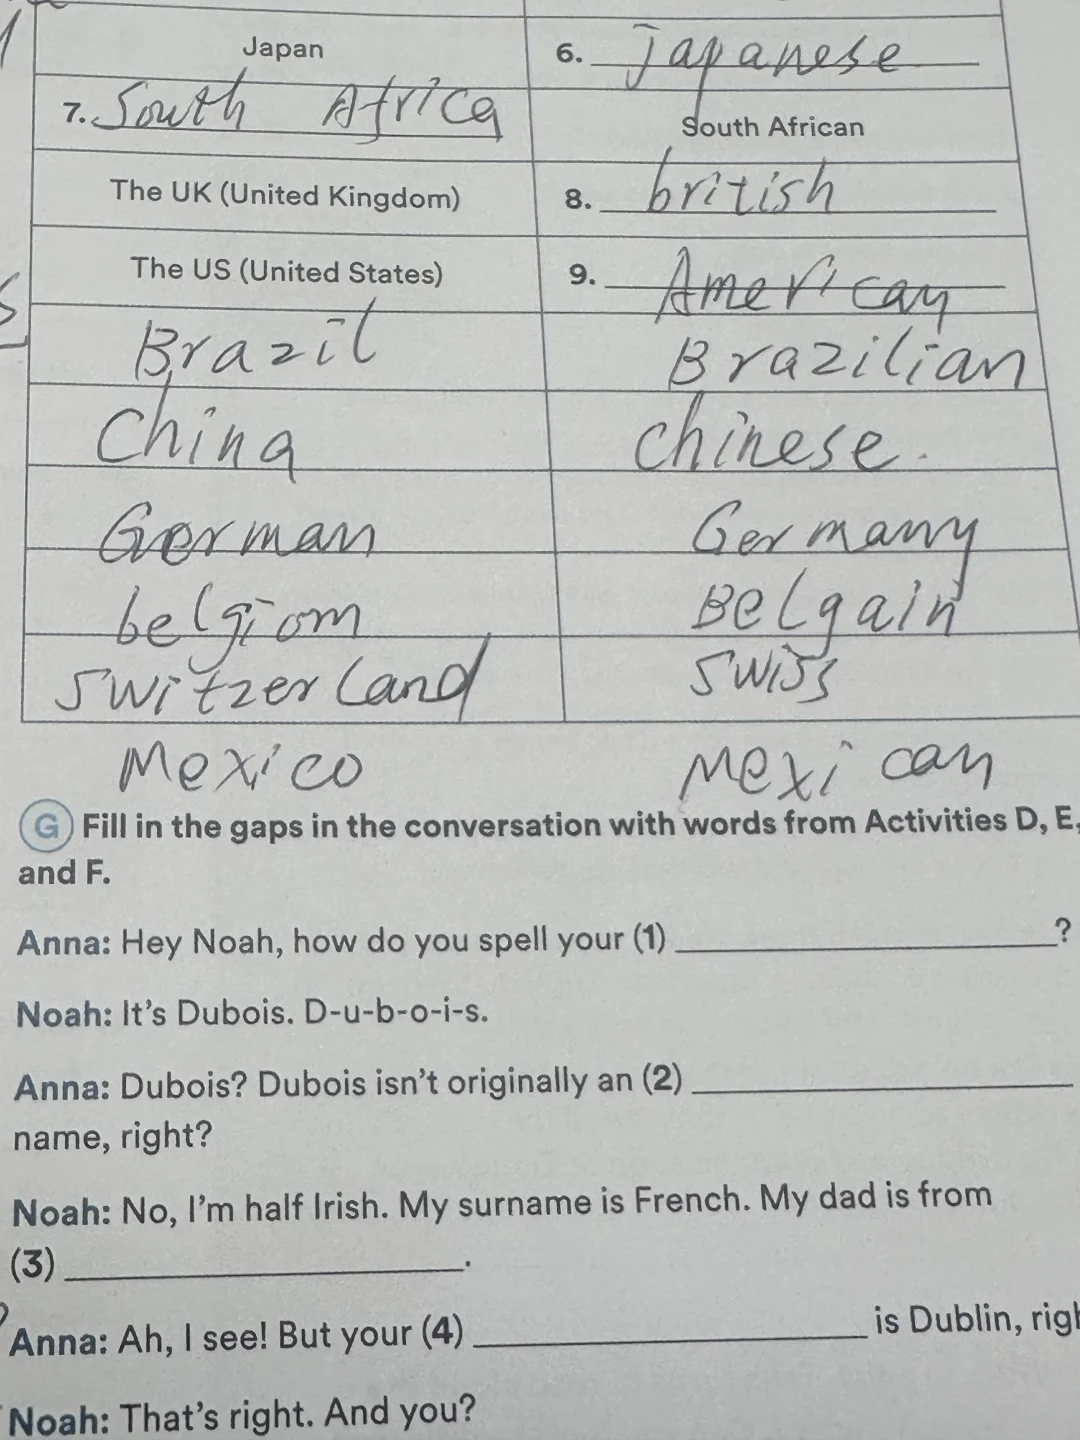 Japan 6. Japanese
7. South Africa South African
The UK (United Kingdom) 8. british
The US (United States) 9. American
Brazil Brazilian
China chinese.
German Germany
belgiom Belgain
switzerland swiss
Mexico Mexican
G Fill in the gaps in the conversation with words from Activities D, E,
and F.
Anna: Hey Noah, how do you spell your (1) ?
Noah: It's Dubois. D-u-b-o-i-s.
Anna: Dubois? Dubois isn't originally an (2)
name, right?
Noah: No, I'm half Irish. My surname is French. My dad is from
(3) .
Anna: Ah, I see! But your (4) is Dublin, righ
Noah: That's right. And you?